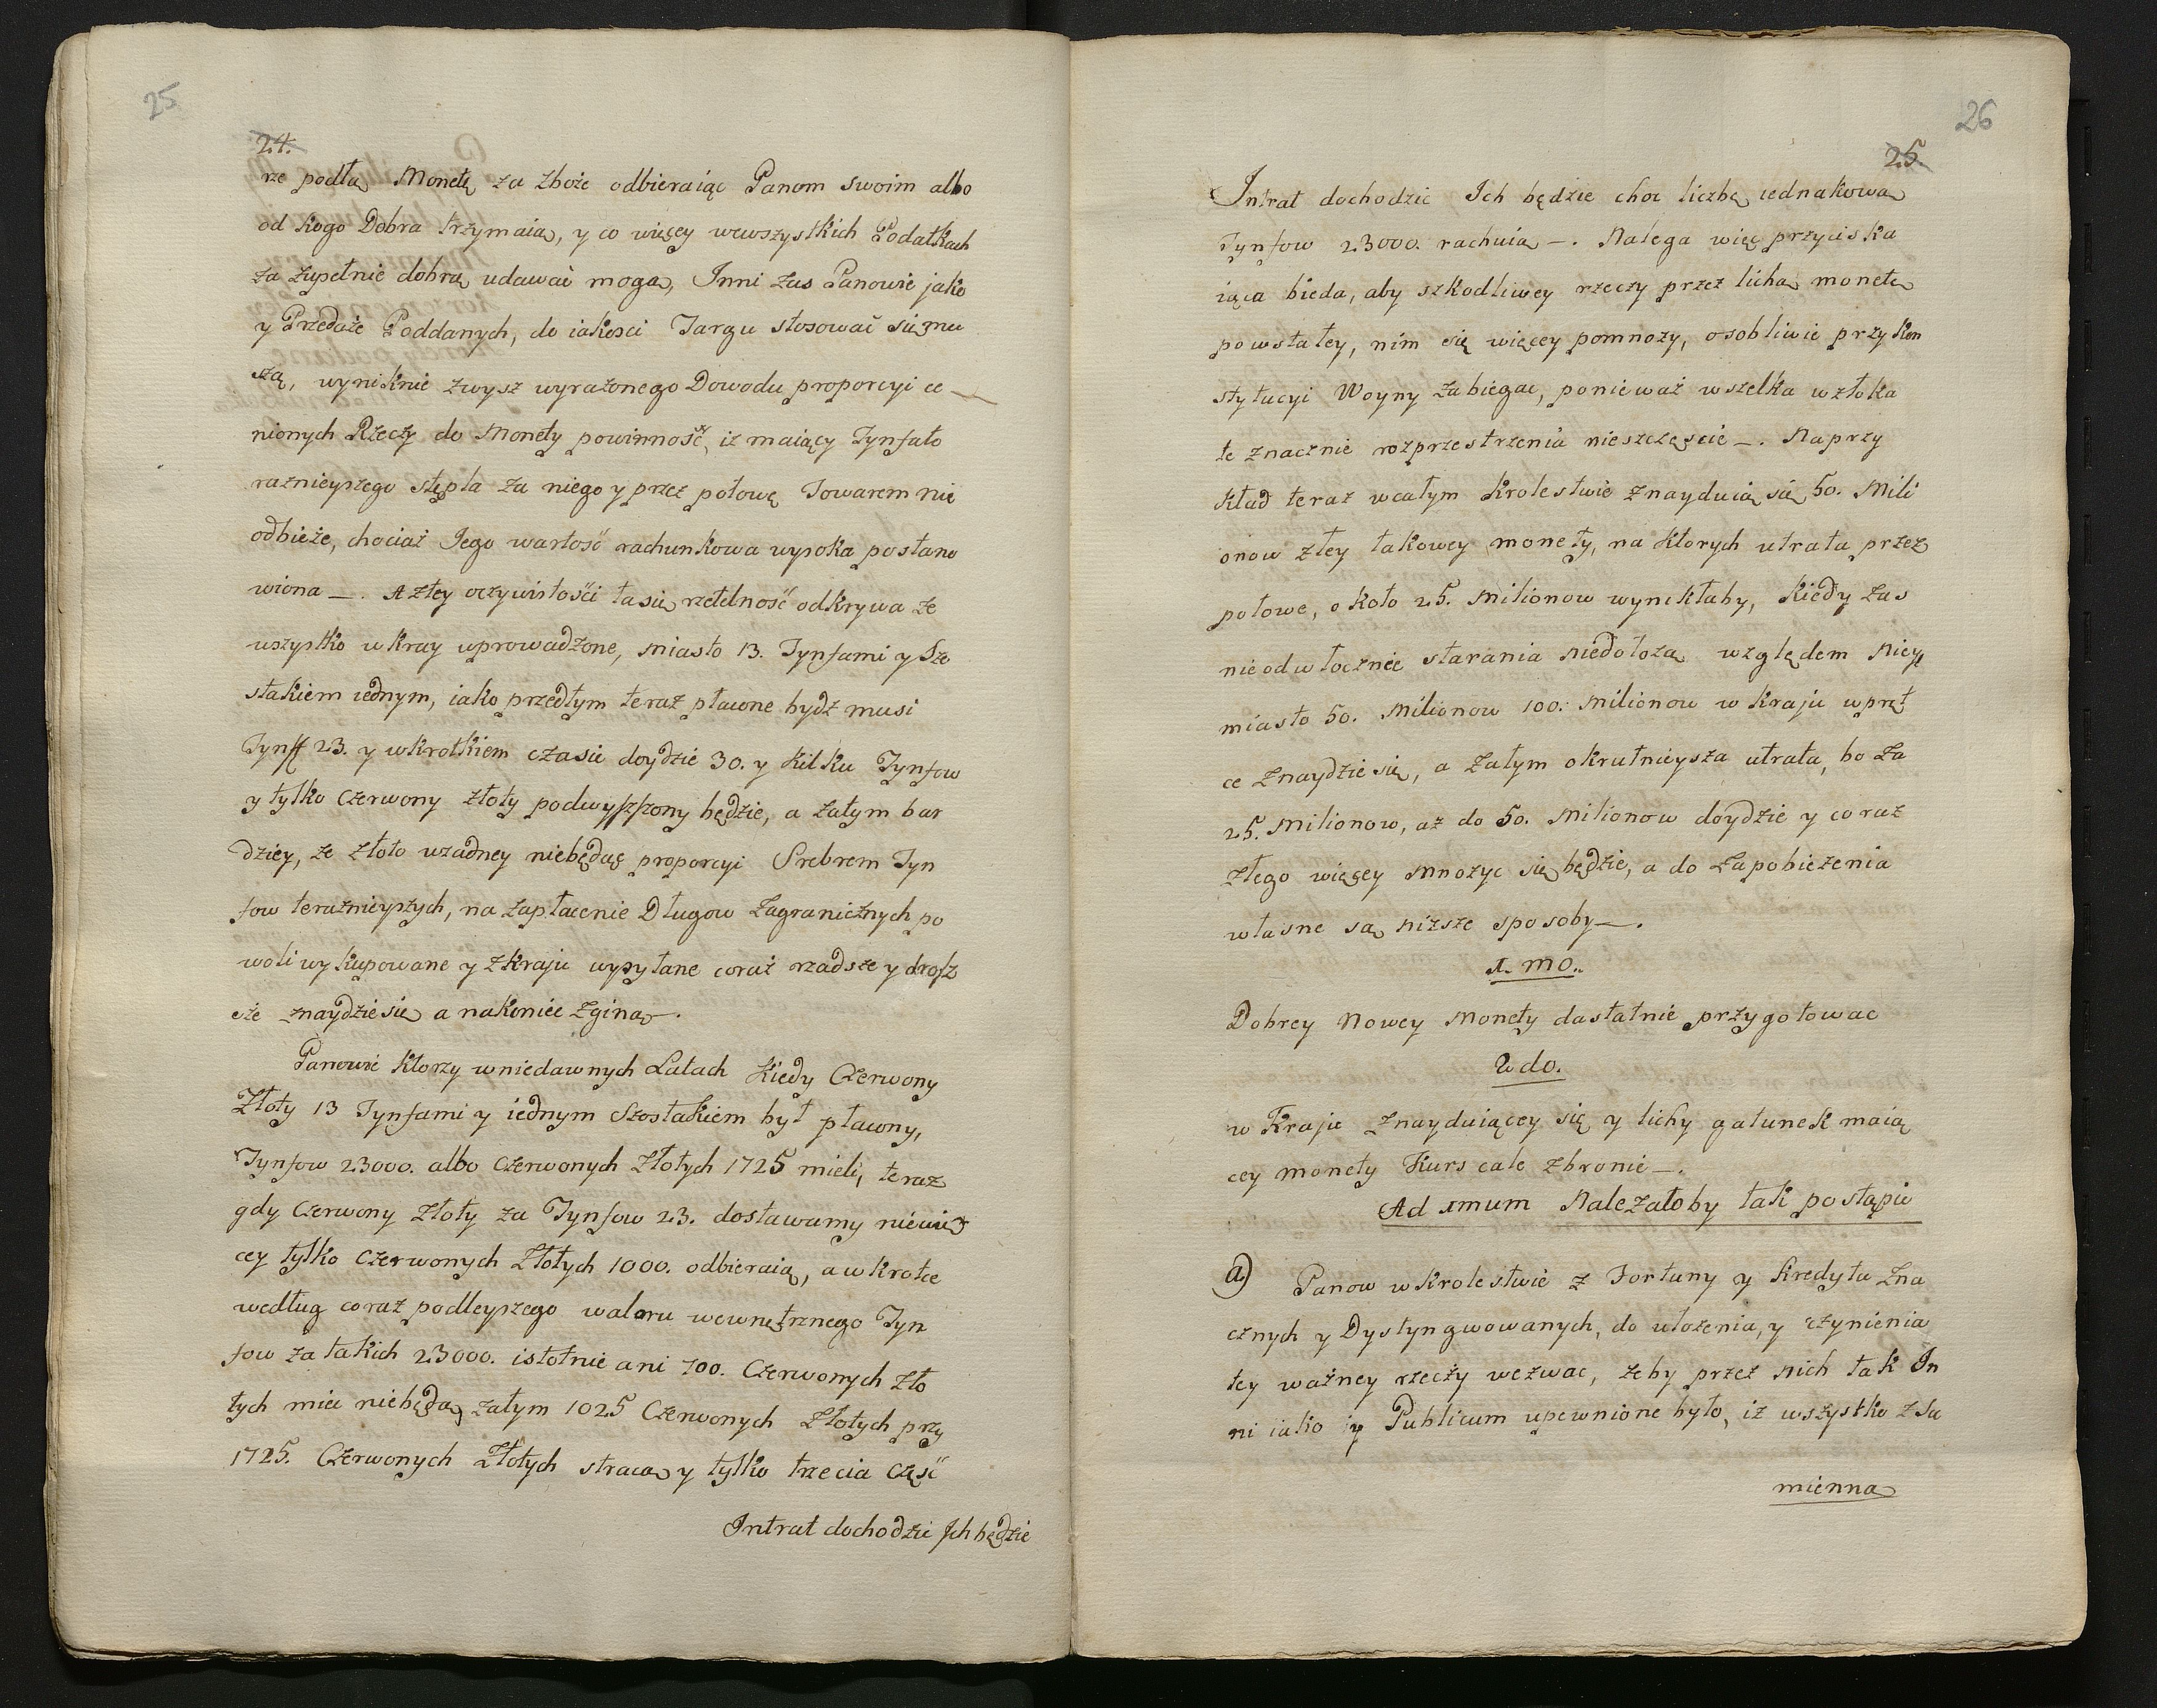 25
24.
rze podłą Monetę za zboże odbieraiąc Panom swoim albo
od kogo Dobra trzymaią, y co więcy wewszystkich Podatkach
za zupełnie dobrą udawać mogą, Inni zas Panowie jako
y Przedaże Poddanych, do iakosci Targu stosować się mu
szą, wyniknie zwysz wyrażonego Dowodu proporcyi ce
nionych Rzeczy do Monety powinność, iż maiący Tynfa te
raznieyszego stępla za niego y przez połowę Towarem nie
odbieże, chociaż Jego wartość rachunkowa wysoka postano
wiona —. A z tey oczywistości ta się rzetelność odkrywa że
wszystko w kray wprowadzone, miasto 13. Tynfami y Sze
stakiem iednym, iako przedtym teraz płacone bydź musi
Tynff 23. y wkrotkiem czasie doydzie 30. y kilku Tynfow
y tylko Czerwony złoty podwyszszony będzie, a zatym bar
dziey, że złoto wzadney niebędąc proporcyi Srebrem Tyn
fow teraznieyszych, na zapłacenie Długow zagranicznych po
woli wykupowane y zkraju wysyłane coraz rzadsze y drosz
sże znaydzie się a nakoniec zginą —.
Panowie ktorzy wniedawnych Latach kiedy Czerwony
Złoty 13 Tynfami y iednym Szostakiem był płacony,
Tynfow 23000. albo Czerwonych Złotych 1725 mieli, teraz
gdy Czerwony Złoty za Tynfow 23. dostawamy niewię
cey tylko Czerwonych Złotych 1000. odbieraią, a w krotce
według coraz podleyszego waloru wewnętrznego Tyn
fow za takich 23000. istotnie ani 700. Czerwonych Zło
tych miec niebędą, zatym 1025 Czerwonych Złotych przy
1725. Czerwonych Złotych stracą y tylko trzecia Część
Intrat dochodzić Ich będzie
26
25.
Intrat dochodzić Ich będzie choc liczbę iednakową
Tynfow 23000. rachuią —. Nalega więc przyciska
iąca bieda, aby szkodliwey rzeczy przez lichą monetę
powstałey, nim się więcey pomnoży, osobliwie przy kon
stytucyi Woyny zabiegac, ponieważ wszelka wzłoka
te znacznie rozprzestrzenia nieszczęście —. Naprzy
kład teraz wcałym Krolestwie znayduią się 50. Mili
onow złey takowey monety, na ktorych utrata przez
połowę, około 25. Milionow wynikłaby, kiedy zas
nieodwłocznie starania niedołożą względem Niey,
miasto 50. Milionow 100. Milionow w kraju wprę
ce znaydzie się, a zatym okrutnieysza utrata, bo za
25. Milionow, aż do 50. Milionow doydzie y coraz
złego więcey mnożyc się będzie, a do zapobieżenia
własne są niższe sposoby —.
1. mo.
Dobrey Nowey Monety dostatnie przygotowac
2 do.
w Kraju znayduiącey się y lichy gatunek maią
cey monety Kurs cale zbronic —.
Ad 1mum Nalezałoby tak postąpic
a) Panow w Krolestwie z Fortuny y Kredytu zna
cznych y Dystyngwowanych, do ułozenia, y czynienia
tey ważney rzeczy wezwac, żeby przez nich tak In
ni iako y Publicum upewnione było, iż wszystko z Su
mienna